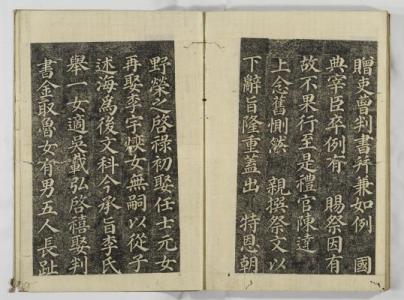 贈吏曹判書幷兼如例 國
典宰臣卒例有 賜祭因有
故不果行至是禮官陳達
上念舊惻然 親撰祭文以
下辭旨隆重蓋出 特恩朝
野榮之啓祿初娶任士元女
再娶李宇女無嗣以從子
述海爲後文科今承旨李氏
擧一女適吳載弘啓禧娶判
書金取魯女有男五人長趾